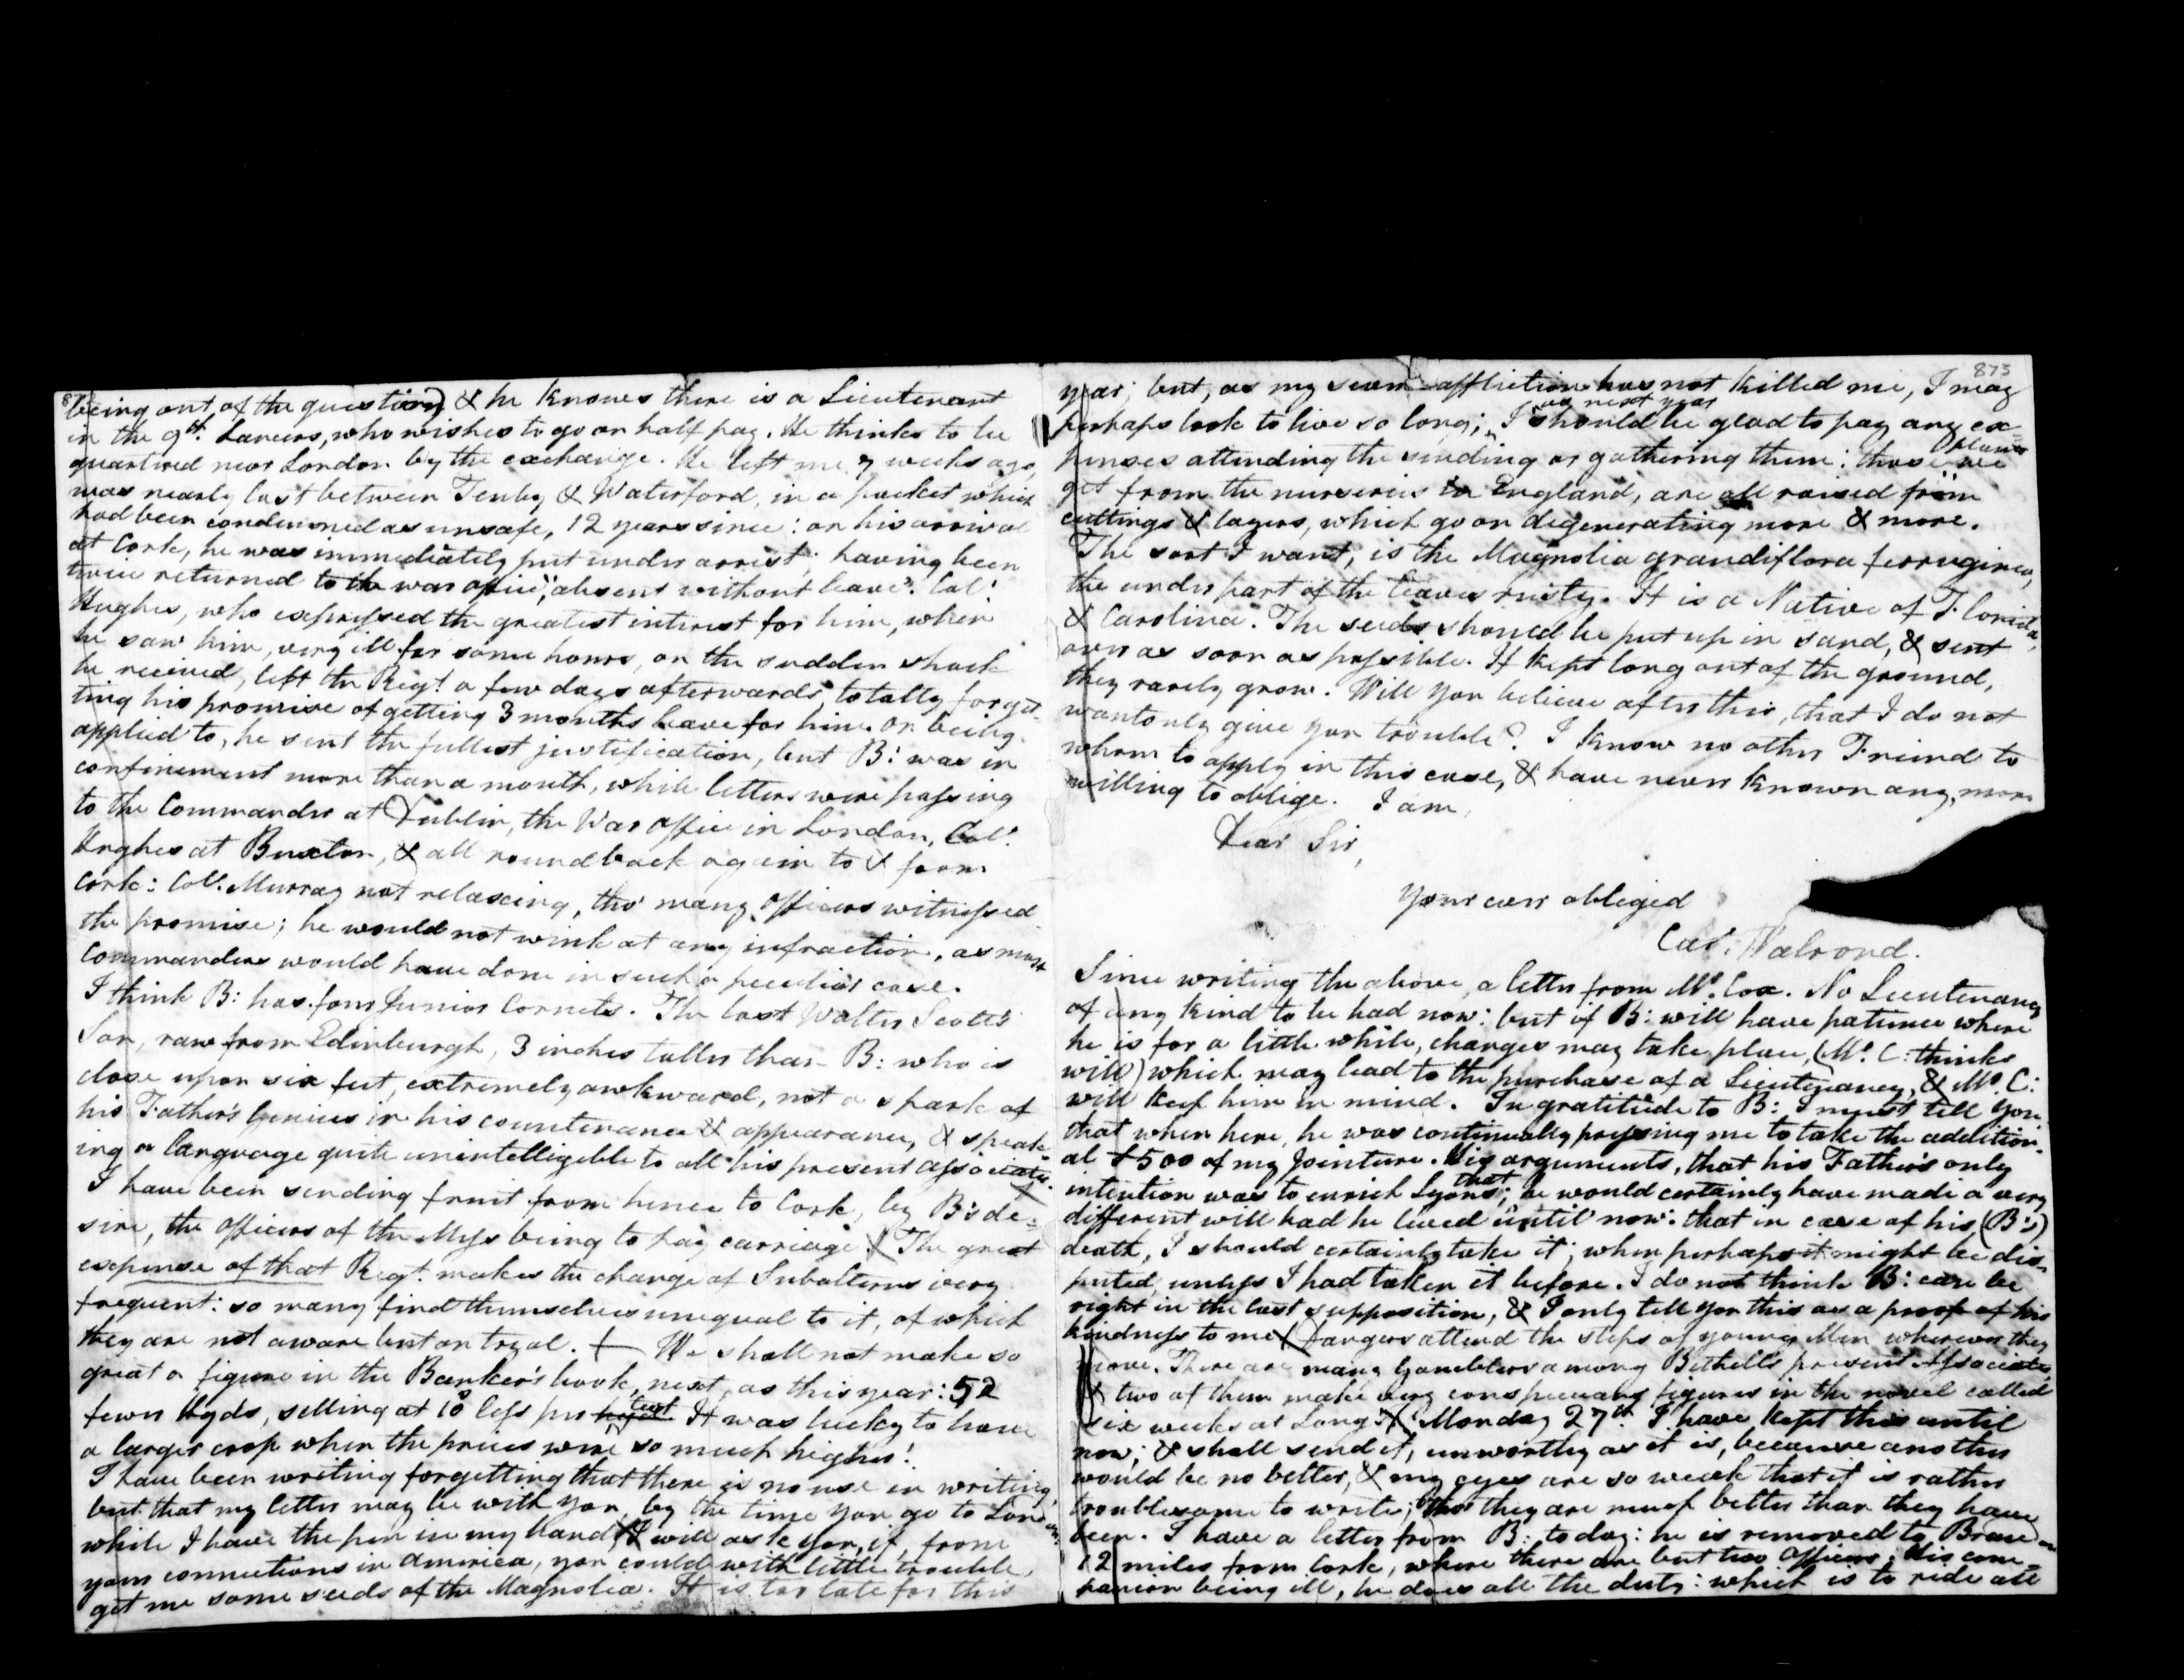 being out of the question) & he knows there is a Lieutenant
in the 9th. Lancers, who wishes to go on half pay. He thinks to be
quartered near London by the exchange. He left me 7 weeks ago,
was nearly lost between Tenby & Waterford, in a packet which
had been condemned as unsafe, 12 years since: on his arrival
at Cork, he was immediately put under arrest; having been
twice returned to the war office, "absent without leave". Col.
Hughes, who expressed the greatest interest for him, when
he saw him, very ill for some hours, on the sudden shock
he received, left the Regt. a few days afterwards totally forget-
ting his promise of getting 3 months leave for him. On being
applied to, he sent the fullest justification, but B: was in
confinement more than a month, while letters were passing
to the Commander at Dublin, the War office in London, Col.
Hughes at Buxton, & all round back again to & from
Cork: Col. Murray not relaxing, tho' many officers witnessed
the promise; he would not wink at any infraction, as most
Commanders would have done in such a peculiar case.
I think B: has four Junior Cornets. The last Walter Scott's
Son, raw from Edinburgh, 3 inches taller than B: who is
close upon six feet, extremely awkward, not a spark of
his Father's Genius in his countenance & appearance, & speak-
ing a language quite unintelligible to all his present associates.
I have been sending fruit from hence to Cork, by B's de-
sire, the officers of the Mess being to pay carriage. The great
expense of that Regt. makes the change of Subalterns very
frequent: so many find themselves unequal to it, of which
they are not aware but on tryal. We shall not make so
great a figure in the Banker's book, next, as this year: 52
fewer Hgds, selling at 10s less per cwt It was lucky to have
a larger crop when the prices were so much higher!
I have been writing forgetting that there is no use in writing,
but that my letter may be with you by the time you go to London
while I have the pen in my hand I will ask you, if, from
your connections in America, you could with little trouble,
get me some seeds of the Magnolia. It is too late for this
873
year; but, as my severe affliction has not killed me, I may
as next year
perhaps look to live so long; I should be glad to pay any ex-
plants
penses attending the sending or gathering them: those we
get from the nurseries in England, are all raised from
cuttings & layers, which go on degenerating more & more.
The sort I want, is the Magnolia grandiflora ferruginea,
the under part of the leaves rusty. It is a Native of Florida,
& Carolina. The seeds should be put up in sand, & sent
over as soon as possible. If kept long out of the ground,
they rarely grow. Will you believe after this, that I do not
wantonly give you trouble? I know no other Friend to
whom to apply in this case, & have never known any, more
willing to oblige. I am,
Dear Sir,
Your ever obliged
Car. Walrond.
Since writing the above, a letter from Mr. Cox. No Lieutenancy
of any kind to be had now: but if B: will have patience where
he is for a little while, changes may take place, (Mr. C: thinks
will) which may lead to the purchase of a Lieutenancy, & Mr. C:
will keep him in mind. In gratitude to B: I must tell you
that when here, he was continually pressing me to take the addition-
al £500 of my Jointure. His arguments, that his Father's only
intention was to enrich Lyons; that he would certainly have made a very
different will had he lived until now: that in case of his (B:'s)
death, I should certainly take it; when perhaps it might be dis-
puted, unless I had taken it before. I do not think B: can be
right in the last supposition, & I only tell you this as a proof of his
kindness to me. Dangers attend the steps of young Men wherever they
move. There are many Gamblers among Bethell's present Associates,
& two of them make very conspicuous figures in the novel called
six weeks at Longs. Monday 27th. I have kept this until
now; & shall send it, unworthy as it is, because another
would be no better, & my eyes are so weak that it is rather
troublesome to write; tho' they are much better than they have
been. I have a letter from B: to day: he is removed to
12 miles from Cork, where there are but two officers; his com-
panion being ill, he does all the duty: which is to ride all